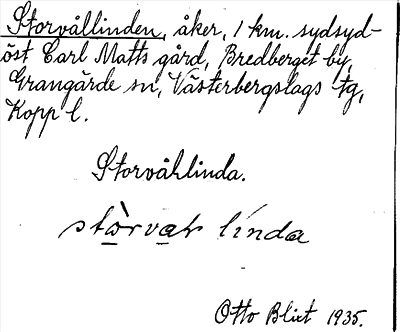 Storvållinden, åker, 1 km. sydsyd-
öst Carl Matts gård, Bredberget by,
Grangärde sn, Västerbergslags tg,
Kopp l.
Storvåhlinda.
stòrvar linda
Otto Blixt 1935.